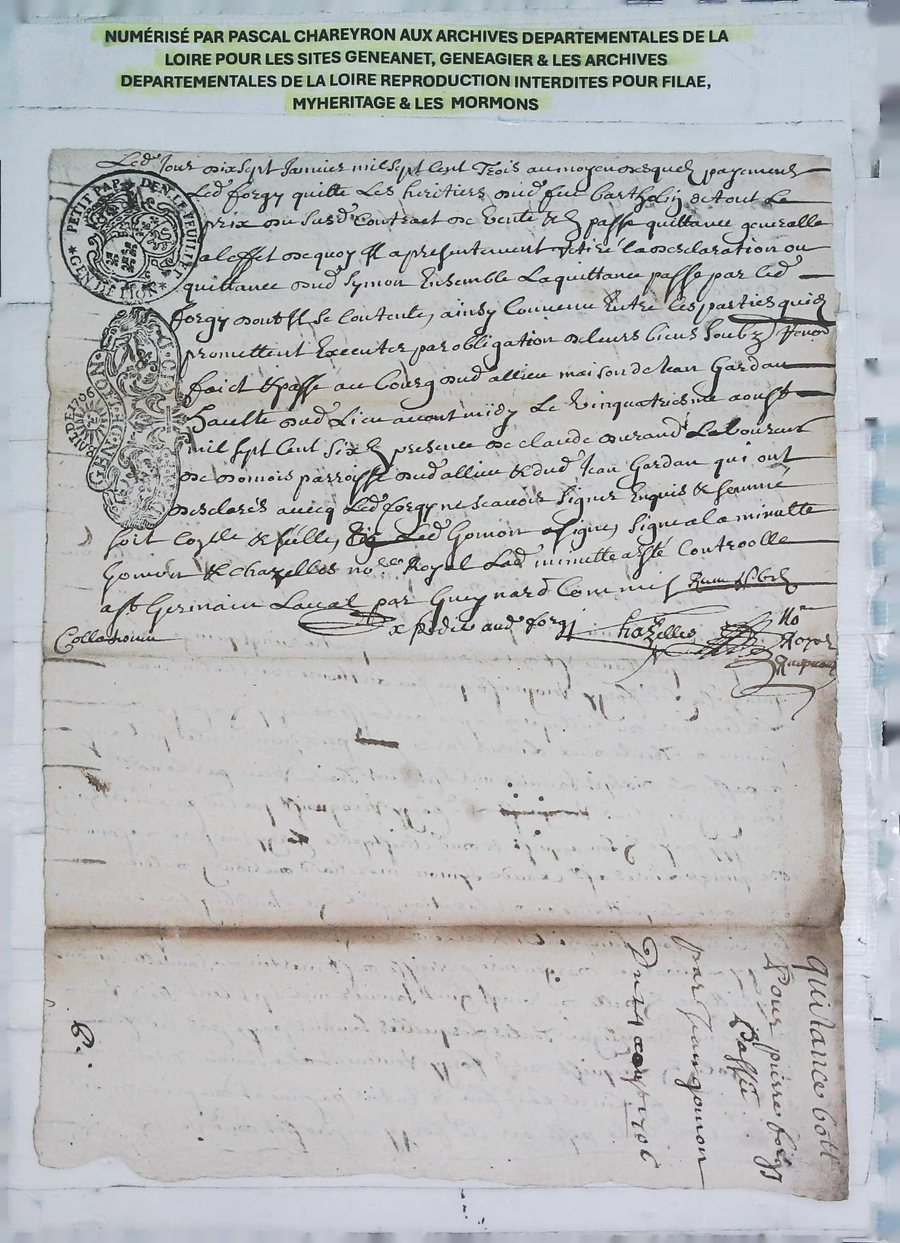 NUMÉRISÉ PAR PASCAL CHAREYRON AUX ARCHIVES DEPARTEMENTALES DE LA
LOIRE POUR LES SITES GENEANET, GENEAGIER & LES ARCHIVES
DEPARTEMENTALES DE LA LOIRE REPRODUCTION INTERDITES POUR FILAE,
MYHERITAGE & LES MORMONS
Led Jour dixsept Janvier mil sept Cent Trois au moyen duquel payement
Led forgy quitte Les heritiers dud feu barthelin de tout Le
prix du susd Contract de Vente & passe quittance generalle
a leffet de quoy Il a presentement retiré la declaration ou
quittance dud Symon Ensemble La quittance passé par led
forgy dont Il se Contente, ainsy Convenu Entre les parties qui
promettent Executer par obligation de leurs biens soubz
faict & passé au bourg dud allieu maison de Jean Gardan
dud Lieu avant midy Le Vingquatriesme aoust
mil sept Cent six presence de claude durand Laboureur
de paroisse dud allieu & dud Jean Gardan qui ont
desclarés avecq Led forgy ne scavoir signer Enquis & sommé
Led Gomon signé, signé a la minutte
Gomon & Chazelles no.re Royal Lad minutte a esté Controolle
a st Germain Laval par Gueynard Commis
Expedié aud forgy Chazelles No.re
Royal
PETIT PAP DEN. LE FEUILLET
GEN DE LION
GEN DE LION
quittance
Pour pierre forgy
par Jean gomon
Du 24 aoust 1706
6.